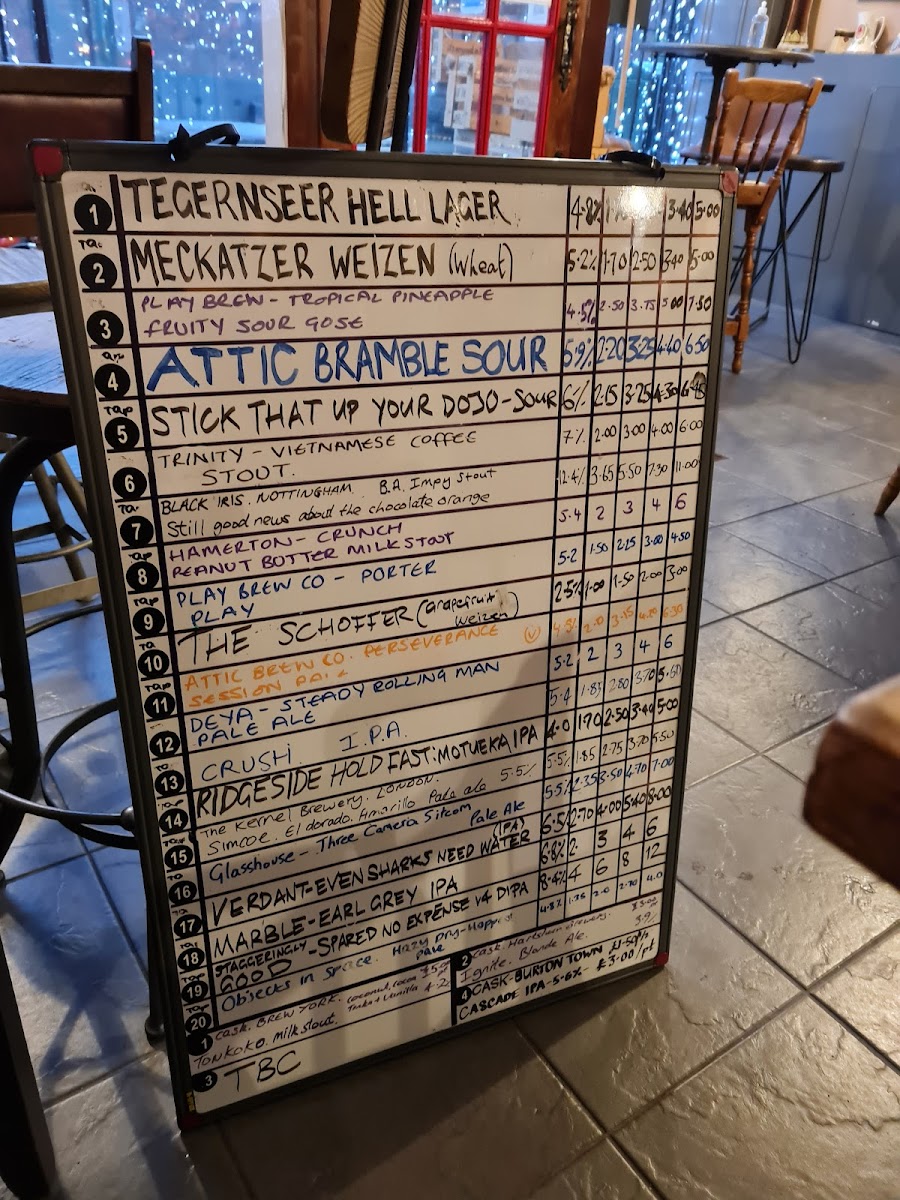 1 TEGERNSEER HELL LAGER 4.8% 3.40 5.00
2 MECKATZER WEIZEN (Wheat) 5.2% 1.70 2.50 3.40 5.00
3 PLAY BREW - TROPICAL PINEAPPLE
FRUITY SOUR GOSE 4.5% 2.50 3.75 5.00 7.50
4 ATTIC BRAMBLE SOUR 5.9% 2.20 3.25 4.40 6.50
5 STICK THAT UP YOUR DOJO-SOUR 6% 2.15 3.25 4.30
6 TRINITY - VIETNAMESE COFFEE
STOUT. 7% 2.00 3.00 4.00 6.00
7 BLACK IRIS. NOTTINGHAM. B.A. Impy Stout
Still good news about the chocolate orange 12.4% 3.65 5.50 7.30 11.00
8 HAMERTON - CRUNCH
PEANUT BUTTER MILK STOUT 5.4 2 3 4 6
9 PLAY BREW CO - PORTER
PLAY 5.2 1.50 2.25 3.00 4.50
10 THE SCHOFFER (Grapefruit
weizen) 2.5% 1.00 1.50 2.00 3.00
11 ATTIC BREW CO. PERSEVERANCE (V)
SESSION PALE
12 DEYA - STEADY ROLLING MAN
PALE ALE 5.2 2 3 4 6
13 CRUSH I.P.A. 5.4 1.85 2.80 3.70
14 RIDGESIDE HOLD FAST: MOTUEKA IPA 4.0 1.70 2.50 3.40 5.00
15 The Kernel Brewery. LONDON.
Simcoe. El dorado. Amarillo Pale ale 5.5% 5.5% 1.85 2.75 3.70 5.50
16 Glasshouse - Three Camera Sitcom Pale Ale 5.5% 2.35 3.50 4.70 7.00
17 VERDANT-EVEN SHARKS NEED WATER (IPA) 6.5% 2.70 4.00 5.40 8.00
18 MARBLE - EARL GREY IPA 6.8% 2. 3 4 6
19 STAGGERINGLY
GOOD - SPARED NO EXPENSE V4 DIPA 8.4% 4 6 8 12
20 Objects in Space. Hazy Dry-Hopped
Pale 4.8%
1 Cask. BREW YORK. coconut, cocoa
TONKOKO. Milk stout. Tonka + Vanilla
2 Cask. Hartshorn Brewery.
Ignite. Blonde Ale. 3.9%
3 TBC
4 CASK-BURTON TOWN
CASCADE IPA-5.6% £3.00/pt